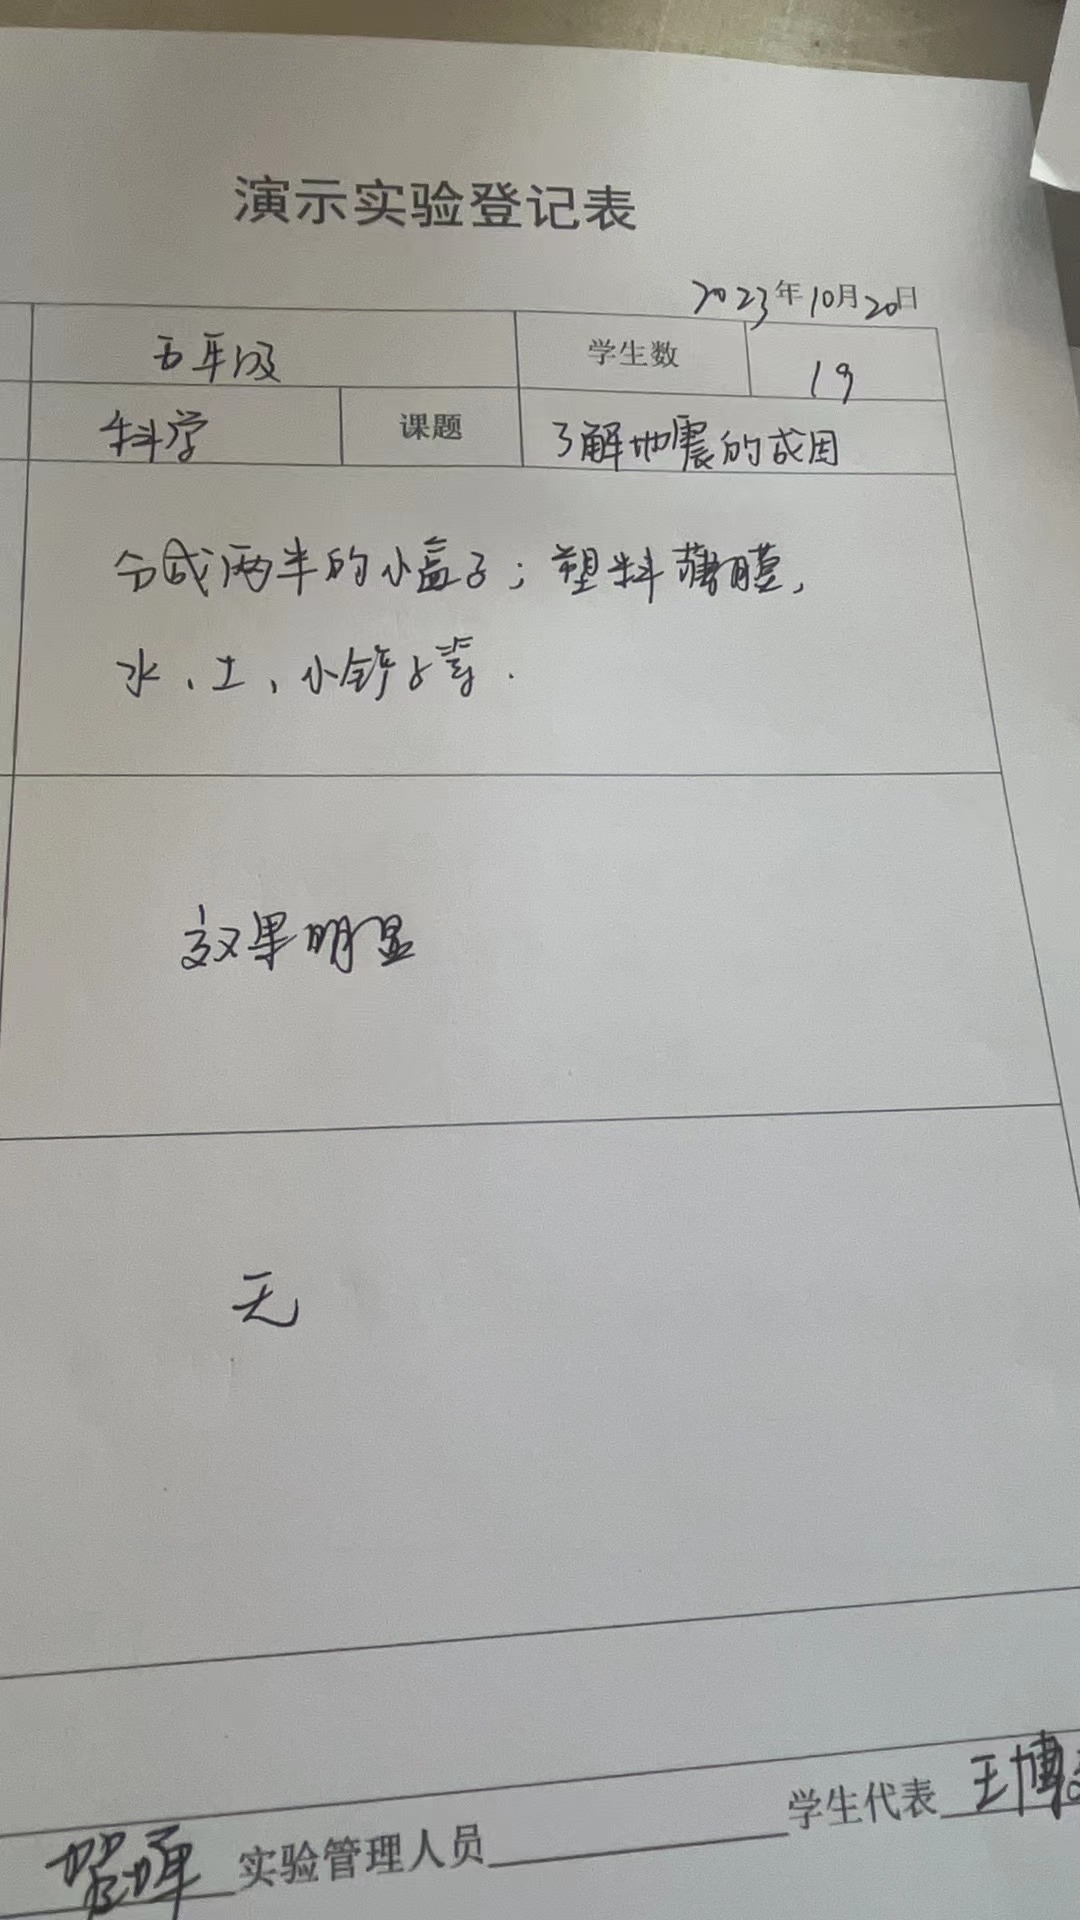 演示实验登记表
2023年10月20日
五年级 学生数 19
科学 课题 了解地震的成因
分成两半的小盒子；塑料薄膜，
水、土，小铲子等.
效果明显
无
实验管理人员 学生代表 王博